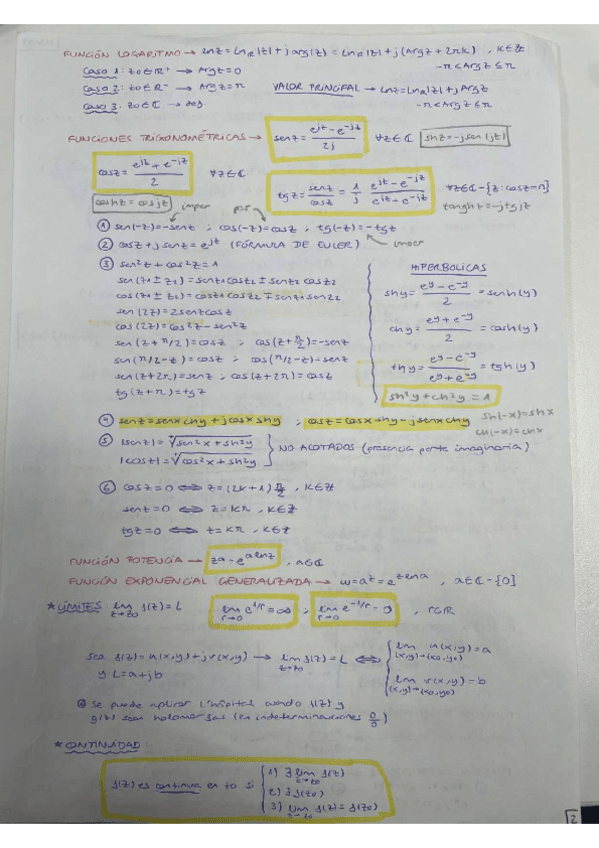 FUNCIÓN LOGARITMO → lnz = ln_R|z| + j arg(z) = ln_R|z| + j(Argz + 2πk), k∈Z
-π < Argz ≤ π
Caso 1: z0∈R⁺ → Argz=0
Caso 2: z0∈R⁻ → Argz=π VALOR PRINCIPAL → Lnz=Ln_R|z|+jArgz
Caso 3: z0∈ℂ → Arg -π<Argz≤π
FUNCIONES TRIGONOMÉTRICAS → senz = (e^jz - e^-jz)/2j ∀z∈ℂ shz=-jsen(jz)
cosz = (e^jz + e^-jz)/2 ∀z∈ℂ tgz = senz/cosz = 1/j (e^jz - e^-jz)/(e^jz + e^-jz) ∀z∈ℂ-{z: cosz=0}
coshz = cosjz tanghz=-jtgjz
impar par
① sen(-z)=-senz ; cos(-z)=cosz ; tg(-z)=-tgz
impar
② cosz + jsenz = e^jz (FÓRMULA DE EULER)
③ sen²z + cos²z = 1
sen(z1 ± z2) = senz1 cosz2 ± senz2 cosz1
cos(z1 ± z2) = cosz1 cosz2 ∓ senz1 senz2
sen(2z) = 2senzcosz
cos(2z) = cos²z - sen²z
sen(z+π/2) = cosz ; cos(z+π/2) = -senz
sen(π/2-z) = cosz ; cos(π/2-z) = senz
sen(z+2π) = senz ; cos(z+2π) = cosz
tg(z+π) = tgz
HIPERBÓLICAS
shy = (e^y - e^-y)/2 = senh(y)
chy = (e^y + e^-y)/2 = cosh(y)
thy = (e^y - e^-y)/(e^y + e^-y) = tgh(y)
sh²y + ch²y = 1
④ senz = senx chy + jcosx shy ; cosz = cosx shy - jsenx chy
sh(-x)=shx
ch(-x)=chx
⑤ |senz| = √(sen²x + sh²y)
|cosz| = √(cos²x + sh²y)
NO ACOTADOS (presencia parte imaginaria)
⑥ cosz=0 ⟺ z=(2k+1)π/2, k∈Z
senz=0 ⟺ z=kπ, k∈Z
tgz=0 ⟺ z=kπ, k∈Z
FUNCIÓN POTENCIA → z^a = e^(a lnz), a∈ℂ
FUNCIÓN EXPONENCIAL GENERALIZADA → w=a^z=e^(z lna), a∈ℂ-{0}
*LÍMITES: lim z→z0 f(z)=L lim r→0 e^(1/r)=∞ ; lim r→0 e^(-1/r)=0, r∈R
Sea f(z)=u(x,y)+jv(x,y) → lim z→z0 f(z)=L ⟺ lim (x,y)→(x0,y0) u(x,y)=a
y L=a+jb
lim (x,y)→(x0,y0) v(x,y)=b
Se puede aplicar L'hôpital cuando f(z) y
g(z) sean holomorfas (en indeterminaciones 0/0)
*CONTINUIDAD:
f(z) es continua en z0 si
1) ∃ lim z→z0 f(z)
2) ∃ f(z0)
3) lim z→z0 f(z)=f(z0)
2